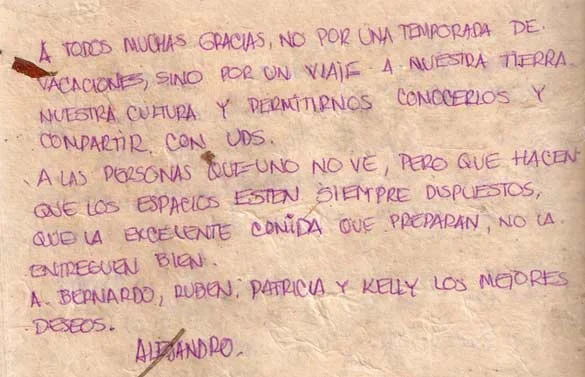 A TODOS MUCHAS GRACIAS, NO POR UNA TEMPORADA DE
VACACIONES, SINO POR UN VIAJE A NUESTRA TIERRA
NUESTRA CULTURA Y PERMITIRNOS CONOCERLOS Y
COMPARTIR CON UDS.
A LAS PERSONAS QUE UNO NO VE, PERO QUE HACEN
QUE LOS ESPACIOS ESTEN SIEMPRE DISPUESTOS,
QUE LA EXCELENTE COMIDA QUE PREPARAN, NO LA
ENTREGUEN BIEN.
A. BERNARDO, RUBEN, PATRICIA Y KELLY LOS MEJORES
DESEOS.
ALEJANDRO.